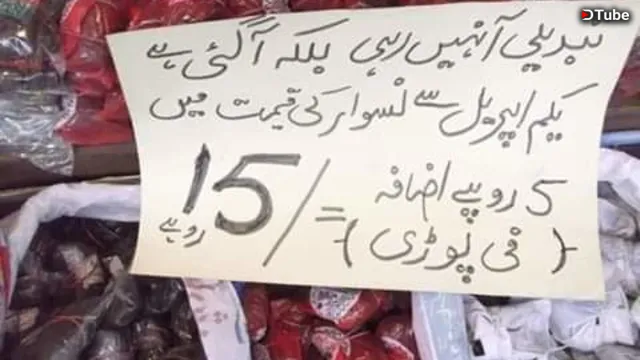 DTube
تبدیلی آنہیں رہی بلکہ آگئی ہے
یکم اپریل سے نسوار کی قیمت میں
5 روپے اضافہ
(فی پوڑی) = /15 روپے